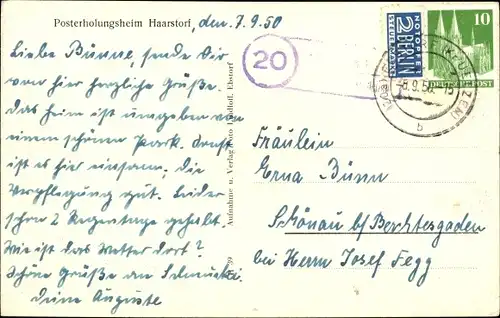 Posterholungsheim Haarstorf, den 7.9.50
Liebe Bünne, sende Dir
von hier herzliche Grüße.
Das Heim ist umgeben von
einem schönen Park. Sonst
ist es hier einsam. Die
Verpflegung gut. Leider
schon 2 Regentage gehabt.
Wie ist das Wetter dort?
Schöne Grüße an
Deine Auguste
Aufnahme u. Verlag Foto Ebstorf
20
NOTOPFER
2
BERLIN
STEUERMARKE
10
DEUTSCHE POST
8.9.50
b
Fräulein
Erna Bünn
Schönau b/Berchtesgaden
bei Herrn Josef Fegg